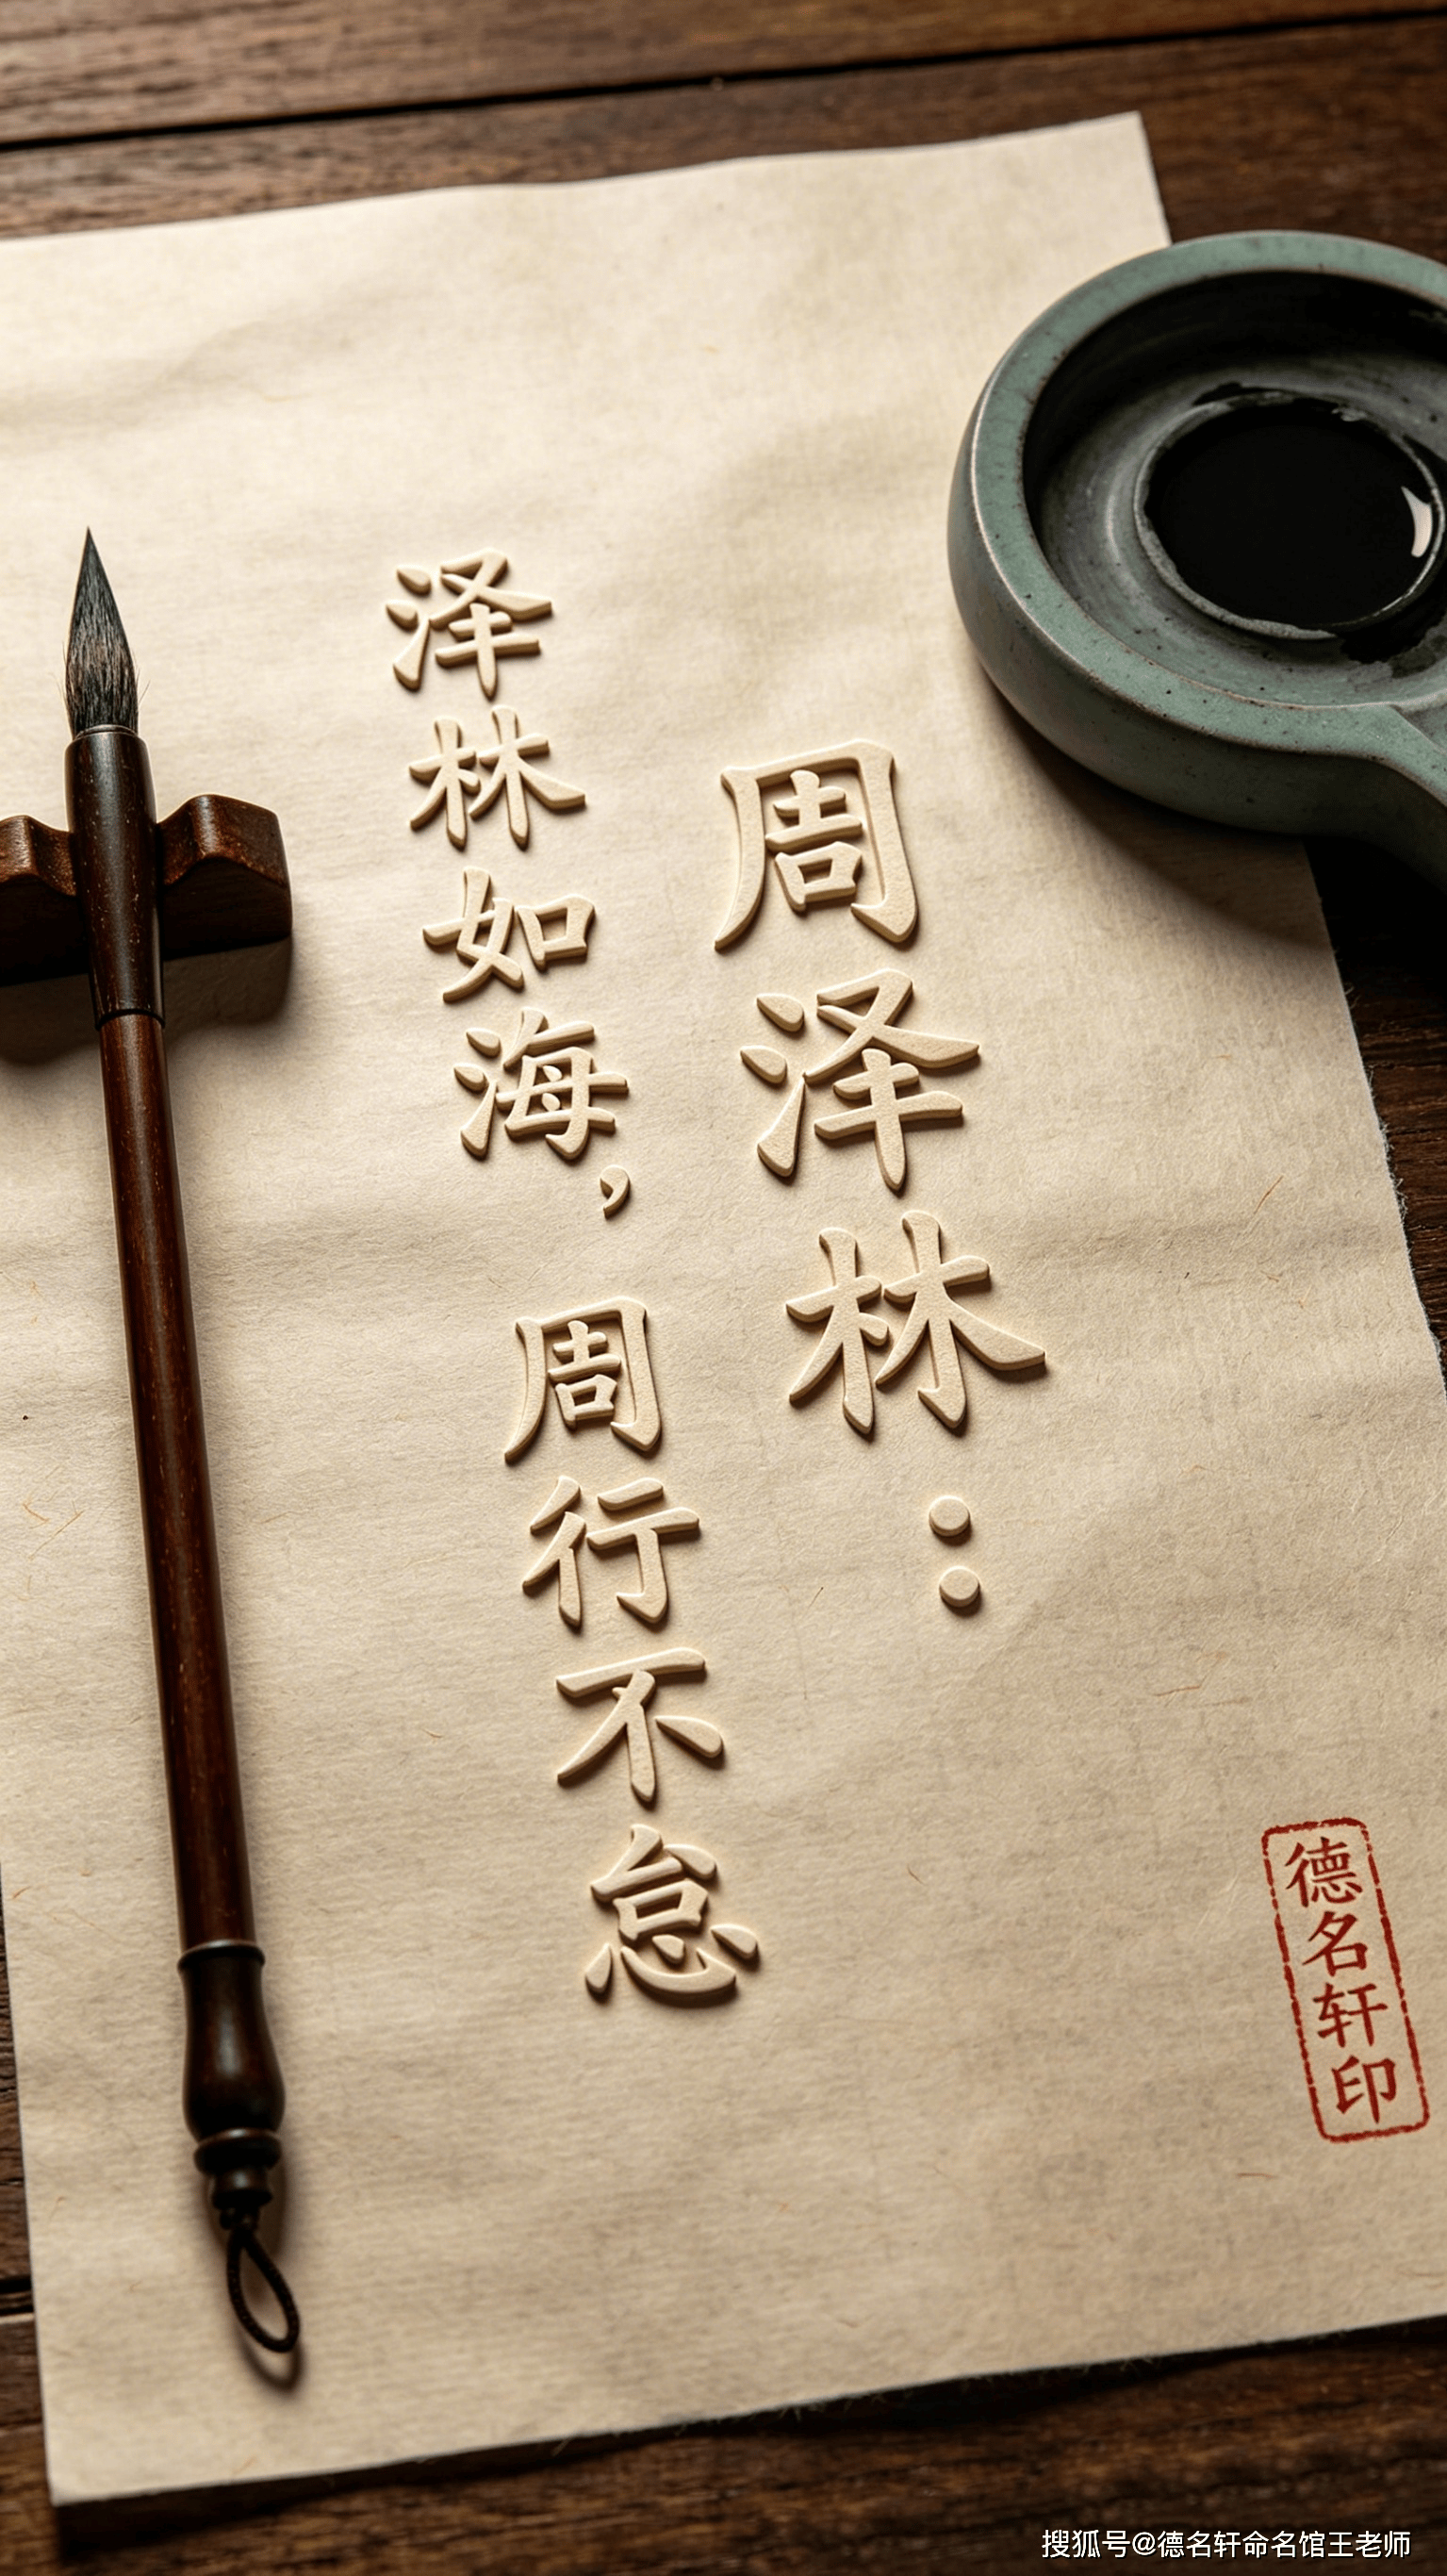 周泽林：
泽林如海，周行不怠
德名轩印
搜狐号@德名轩命名馆王老师